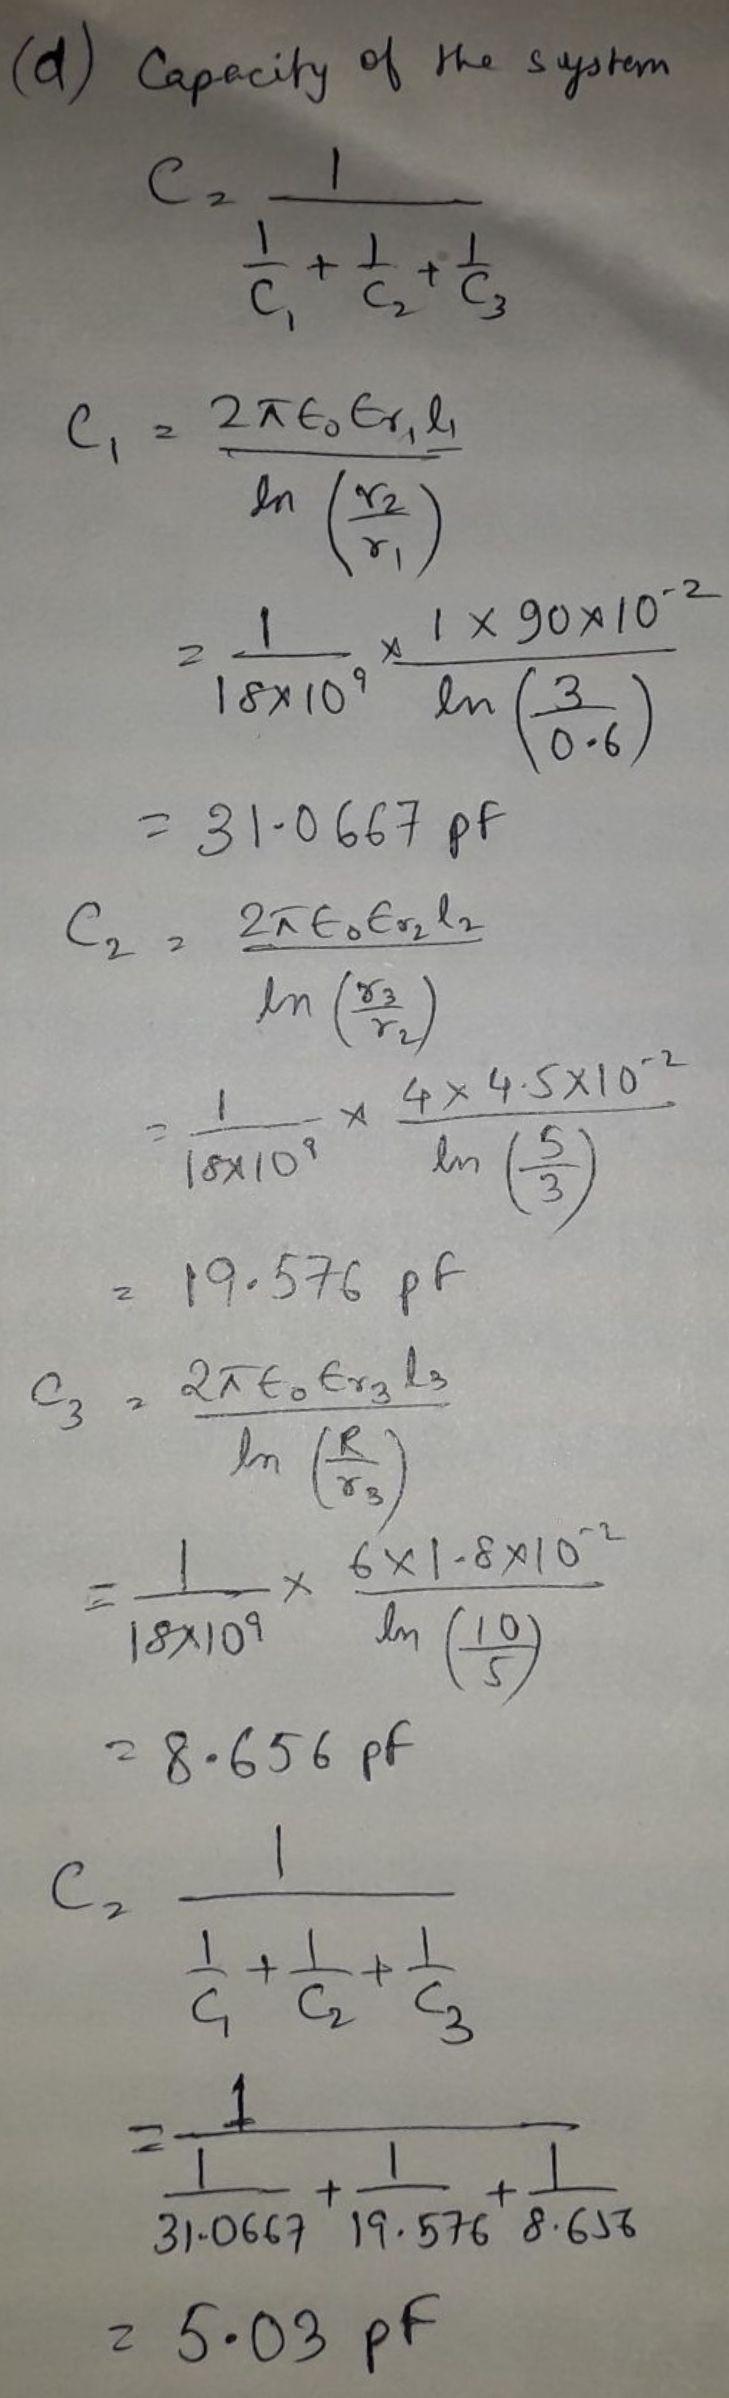 (d) Capacity of the system
C = 1 / (1/C₁ + 1/C₂ + 1/C₃)
C₁ = 2πϵ₀ϵr₁l₁ / ln (r₂/r₁)
= 1/18×10⁹ × 1×90×10⁻² / ln (3/0.6)
= 31.0667 pf
C₂ = 2πϵ₀ϵr₂l₂ / ln (r₃/r₂)
= 1/18×10⁹ × 4×4.5×10⁻² / ln (5/3)
= 19.576 pf
C₃ = 2πϵ₀ϵr₃l₃ / ln (R/r₃)
= 1/18×10⁹ × 6×1.8×10⁻² / ln (10/5)
= 8.656 pf
C = 1 / (1/C₁ + 1/C₂ + 1/C₃)
= 1 / (1/31.0667 + 1/19.576 + 1/8.656)
= 5.03 pf